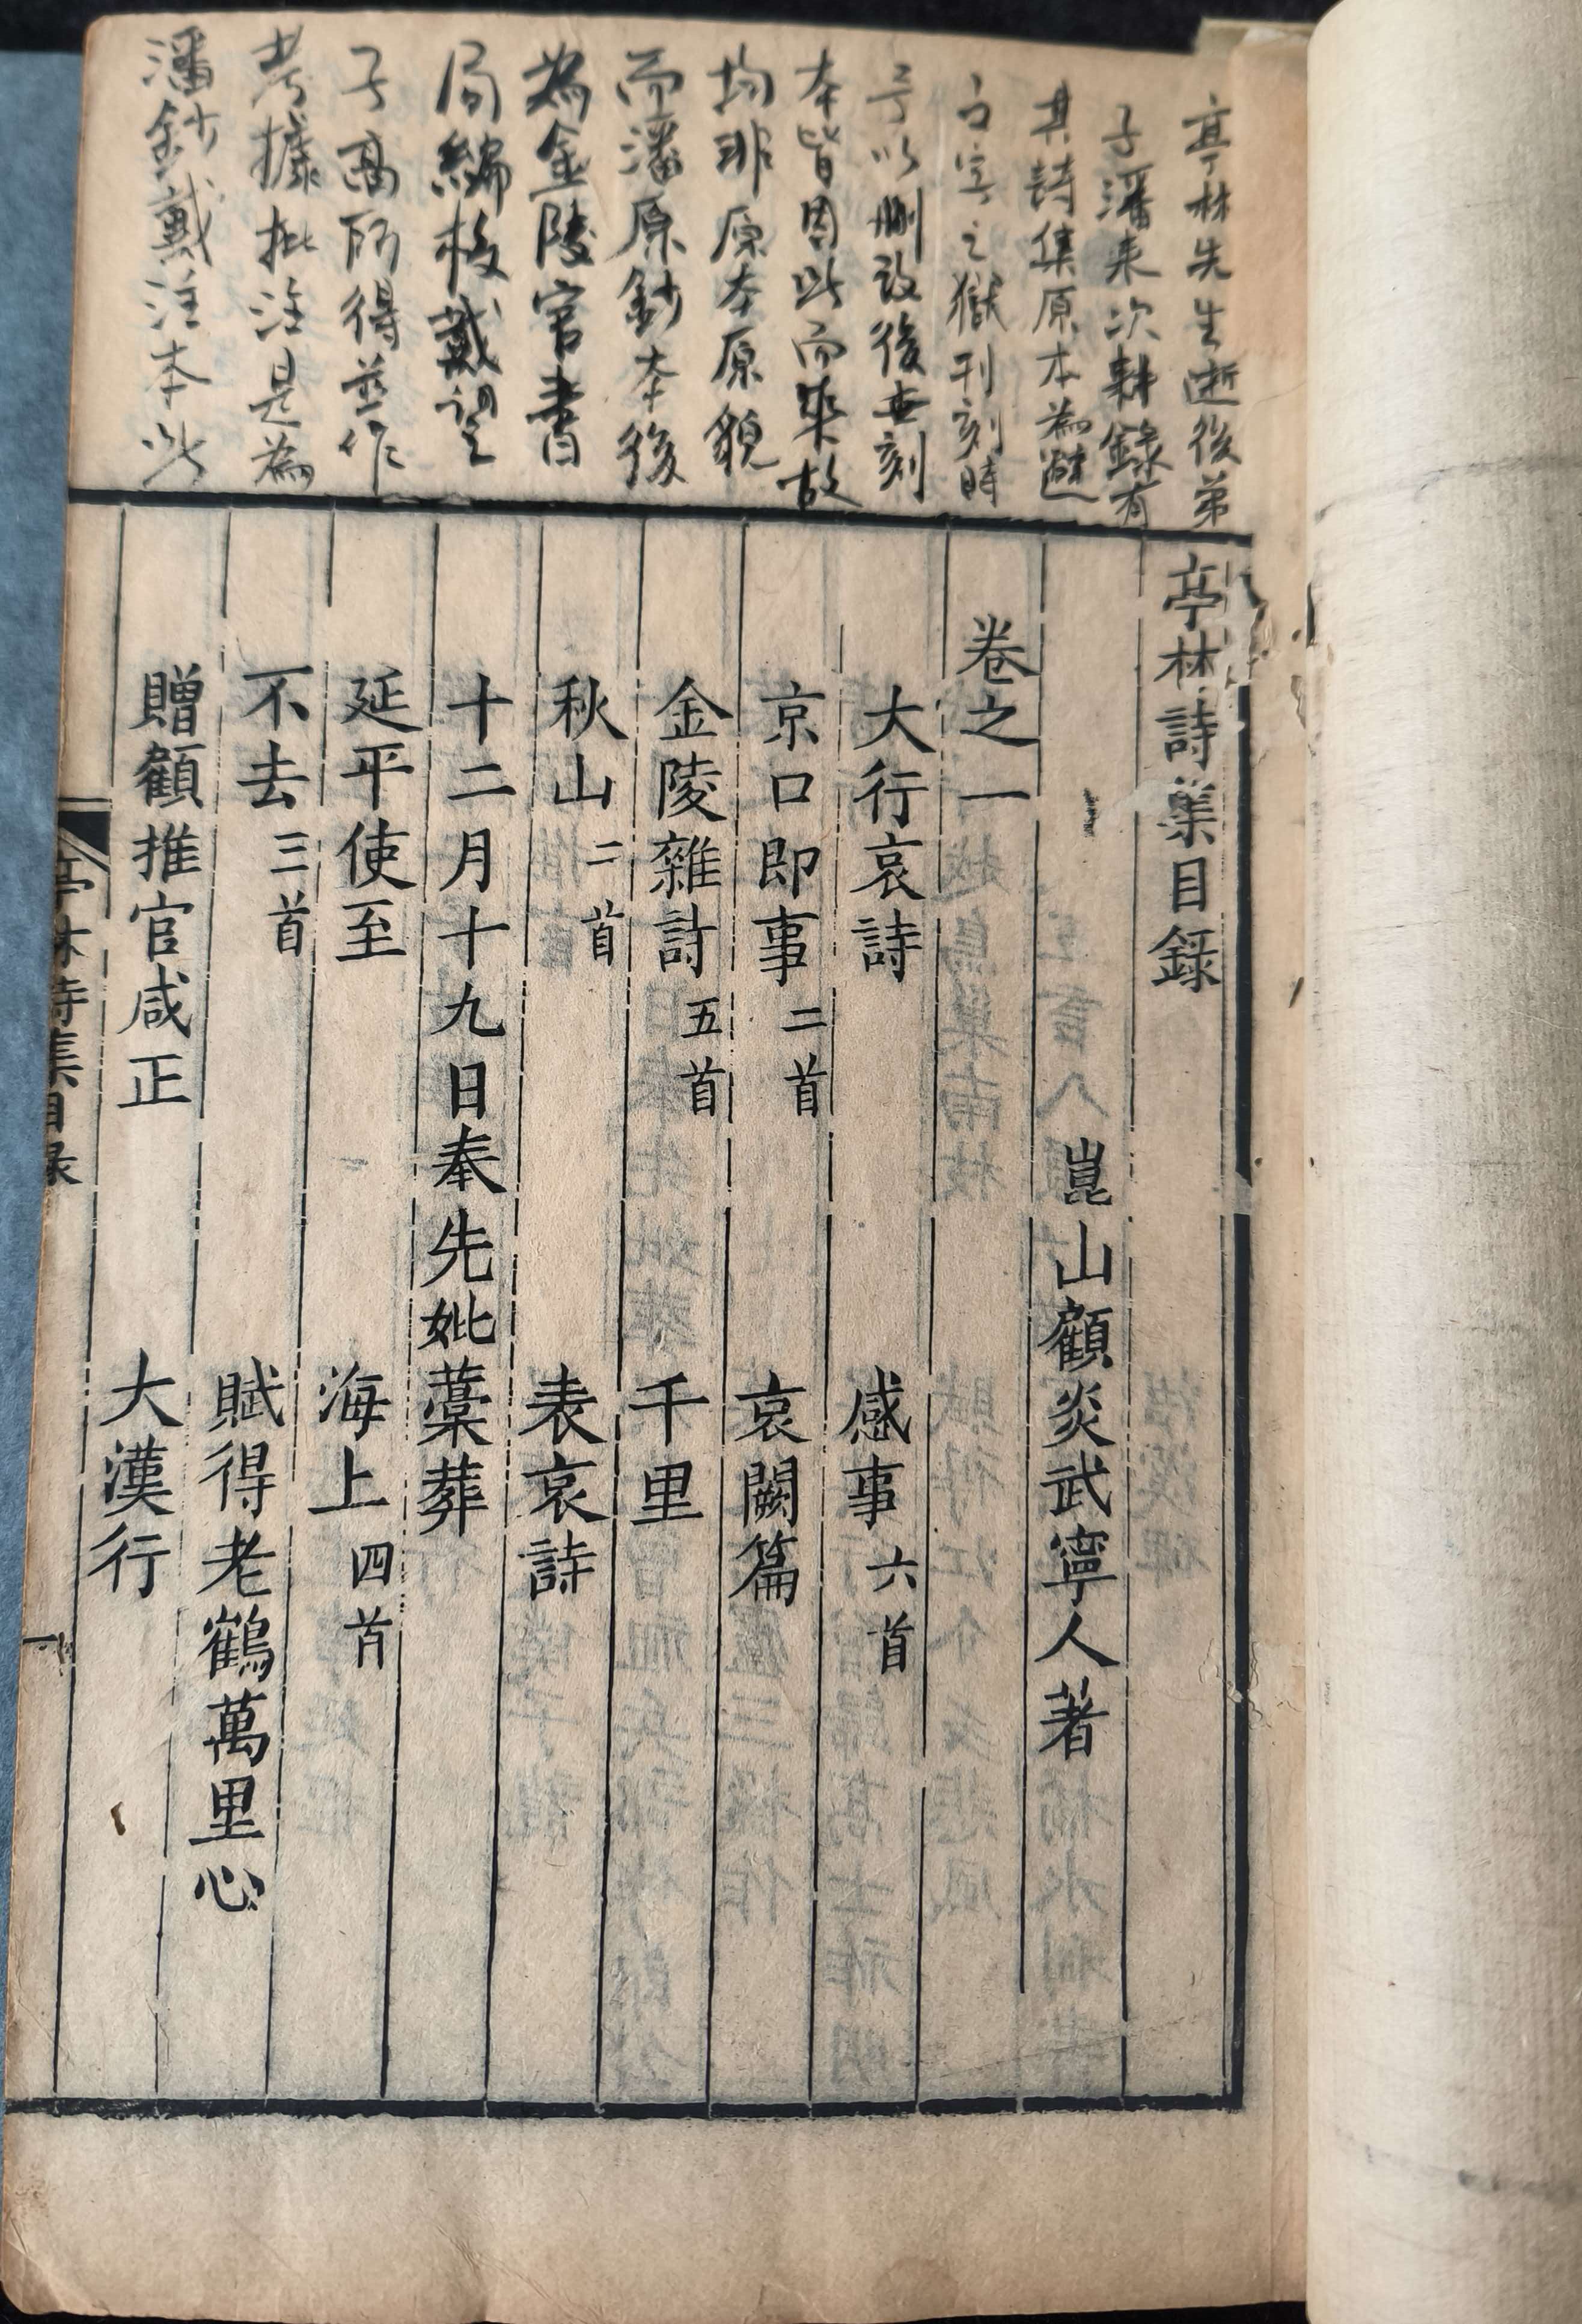 亭林先生逝後弟
子潘耒次耕錄有
其詩集原本為避
文字之獄刊刻時
予以刪改後世刻
本皆因此而來故
均非原本原貌
而潘原鈔本後
為金陵官書
局編校戴望
子高所得並作
考據批注是為
潘鈔戴注本此
亭林詩集目錄
崑山顧炎武寧人著
卷之一
大行哀詩 感事六首
京口即事二首 哀闕篇
金陵雜詩五首 千里
秋山二首 表哀詩
十二月十九日奉先妣藁葬
延平使至 海上四首
不去三首 賦得老鶴萬里心
贈顧推官咸正 大漢行
亭林詩集目录